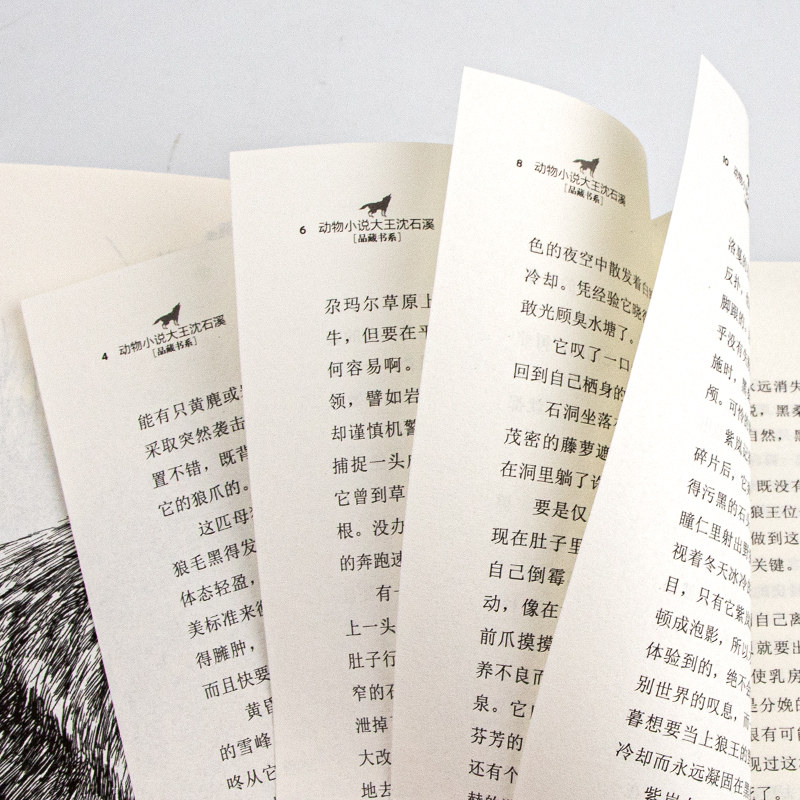 4 动物小说大王沈石溪
[品藏书系]
能有只黄麂或
采取突然袭击
置不错，既背
它的狼爪的。
这匹母
狼毛黑得发
体态轻盈，
美标准来
得臃肿，
而且快要
黄昏
的雪峰
咚从它
6 动物小说大王沈石溪
[品藏书系]
尕玛尔草原上
牛，但要在平
何容易啊。
领，譬如岩
却谨慎机警
捕捉一头
它曾到草
根。没办
的奔跑速
有一
上一头
肚子行
窄的石
泄掉
大改
地去
8 动物小说大王沈石溪
[品藏书系]
色的夜空中散发着白
冷却。凭经验它晓得
敢光顾臭水塘了。
它叹了一口
回到自己栖身的
石洞坐落
茂密的藤萝遮
在洞里躺了许
要是仅
现在肚子里
自己倒霉
动，像在
前爪摸摸
养不良而
泉。它
芬芳的
还有个
赫的
10 动物小
洛戛
反扑
脚跟
乎没有
施时，
颅。可怜
紫岚
碎片后，它
得污黑的石
瞳仁里射出
视着冬天冰冷
目，只有它紫岚
顿成泡影，所以
体验到的，绝不
别世界的叹息，而
暮想要当上狼王的
冷却而永远凝固在
紫岚
永远消失
说，黑桑
自然，黑
既没有
狼王位
做到这
关键。
到自己离
就要出
使乳房
是分娩的
很有可能
见过这
死了。